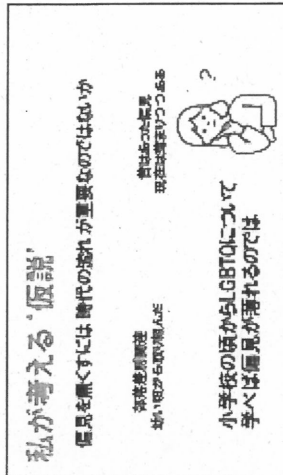 私が考える‘仮説’
偏見を無くすには 時代の流れ が重要なのではないか
部落差別問題
幼い頃から取り組んだ
昔はあった偏見
現在は薄まりつつある
?
小学校の頃からLGBTQについて
学べば偏見が薄れるのでは